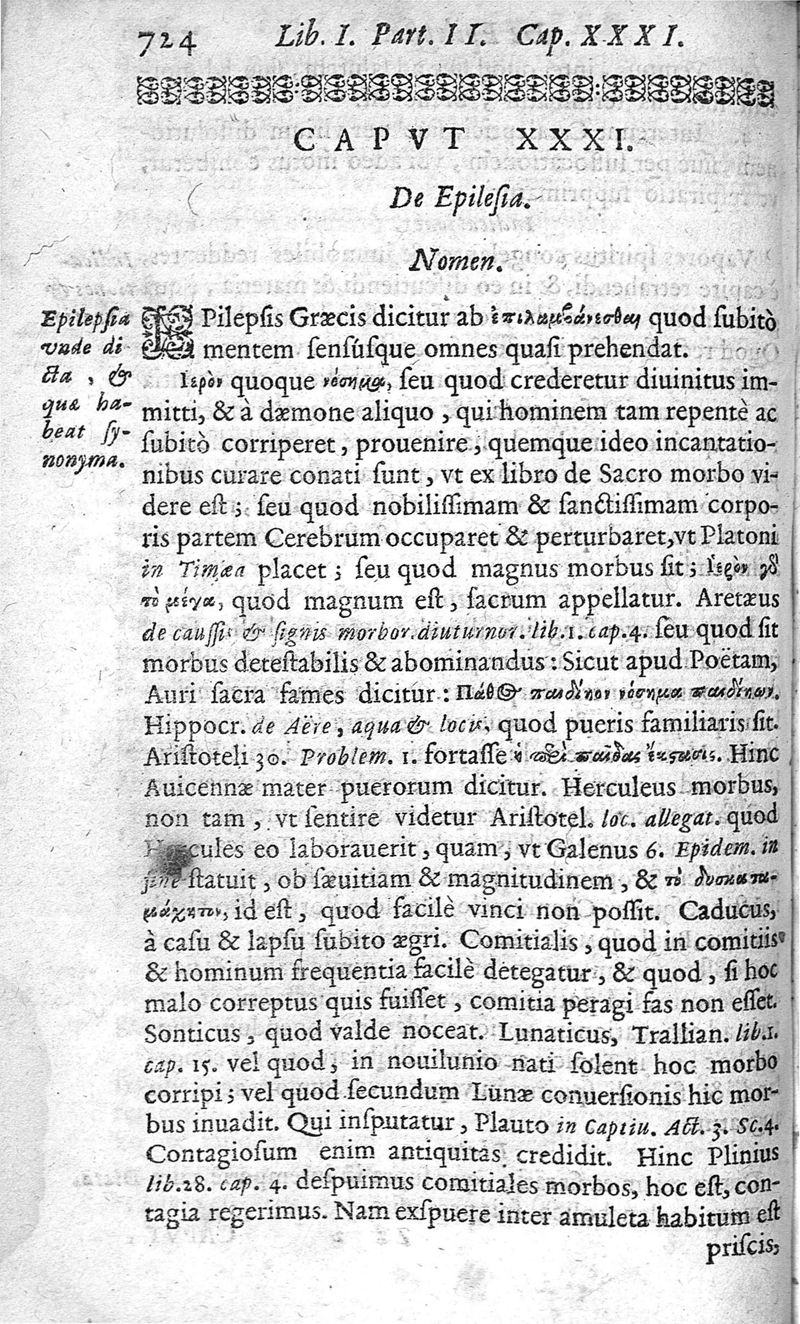 724 Lib. I. Part. II. Cap. XXXI.
CAPVT XXXI.
De Epileſia.
Nomen.
Epilepſia
vnde di-
cta, &
quæ ha-
beat ſy-
nonyma.
EPilepſis Græcis dicitur ab ἐπιλαμβάνεσθαι quod ſubitò
mentem ſenſúſque omnes quaſi prehendat.
Ἱερὸν quoque νόσημα, ſeu quod crederetur diuinitus im-
mitti, & à dæmone aliquo, qui hominem tam repentè ac
ſubitò corriperet, prouenire, quemque ideo incantatio-
nibus curare conati ſunt, vt ex libro de Sacro morbo vi-
dere eſt; ſeu quod nobiliſſimam & ſanctiſſimam corpo-
ris partem Cerebrum occuparet & perturbaret, vt Platoni
in Timæa placet; ſeu quod magnus morbus ſit; Ἱερὸν γὸ
τὸ μέγα, quod magnum eſt, ſacrum appellatur. Aretæus
de cauſſis & ſignis morbor. diuturnor. lib. 1. cap. 4. ſeu quod ſit
morbus deteſtabilis & abominandus: Sicut apud Poëtam,
Auri ſacra fames dicitur: Πάθος παιδίκον νόσημα παιδίκων.
Hippocr. de Aëre, aqua & locis, quod pueris familiaris ſit.
Ariſtoteli 30. Problem. 1. fortaſſe ἡ περὶ παῖδας ἔκστασις. Hinc
Auicennæ mater puerorum dicitur. Herculeus morbus,
non tam, vt ſentire videtur Ariſtotel. loc. allegat. quod
Hercules eo laborauerit, quam, vt Galenus 6. Epidem. in
fine ſtatuit, ob ſæuitiam & magnitudinem, & τὸ δυσκατα-
μάχητον, id eſt, quod facilè vinci non poſſit. Caducus,
à caſu & lapſu ſubito ægri. Comitialis, quod in comitiis
& hominum frequentia facilè detegatur, & quod, ſi hoc
malo correptus quis fuiſſet, comitia peragi fas non eſſet.
Sonticus, quod valde noceat. Lunaticus, Trallian. lib. 1.
cap. 15. vel quod, in nouilunio nati ſolent hoc morbo
corripi; vel quod ſecundum Lunæ conuerſionis hic mor-
bus inuadit. Qui inſputatur, Plauto in Captiu. Act. 3. Sc. 4.
Contagioſum enim antiquitas credidit. Hinc Plinius
lib. 28. cap. 4. deſpuimus comitiales morbos, hoc eſt, con-
tagia regerimus. Nam exſpuere inter amuleta habitum eſt
priſcis,